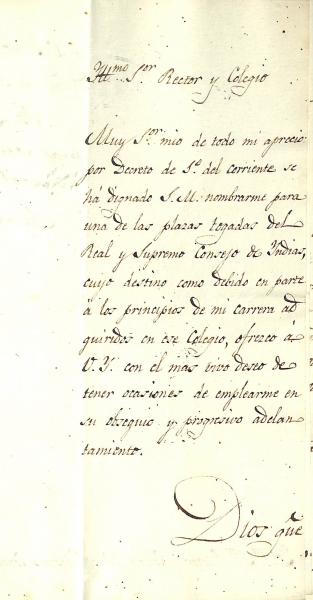 Illmo Sor Rector y Colegio
Muy Sor mio de todo mi aprecio:
por Decreto de 1º del corriente se
há dignado S. M. nombrarme para
una de las plazas togadas del
Real y Supremo Consejo de Yndias,
cuyo destino como debido en parte
á los principios de mi carrera ad
quiridos en ese Colegio, ofrezco á
V. Y. con el mas vivo deseo de
tener ocasiones de emplearme en
su obsequio y progresivo adelan
tamiento.
Dios gũe